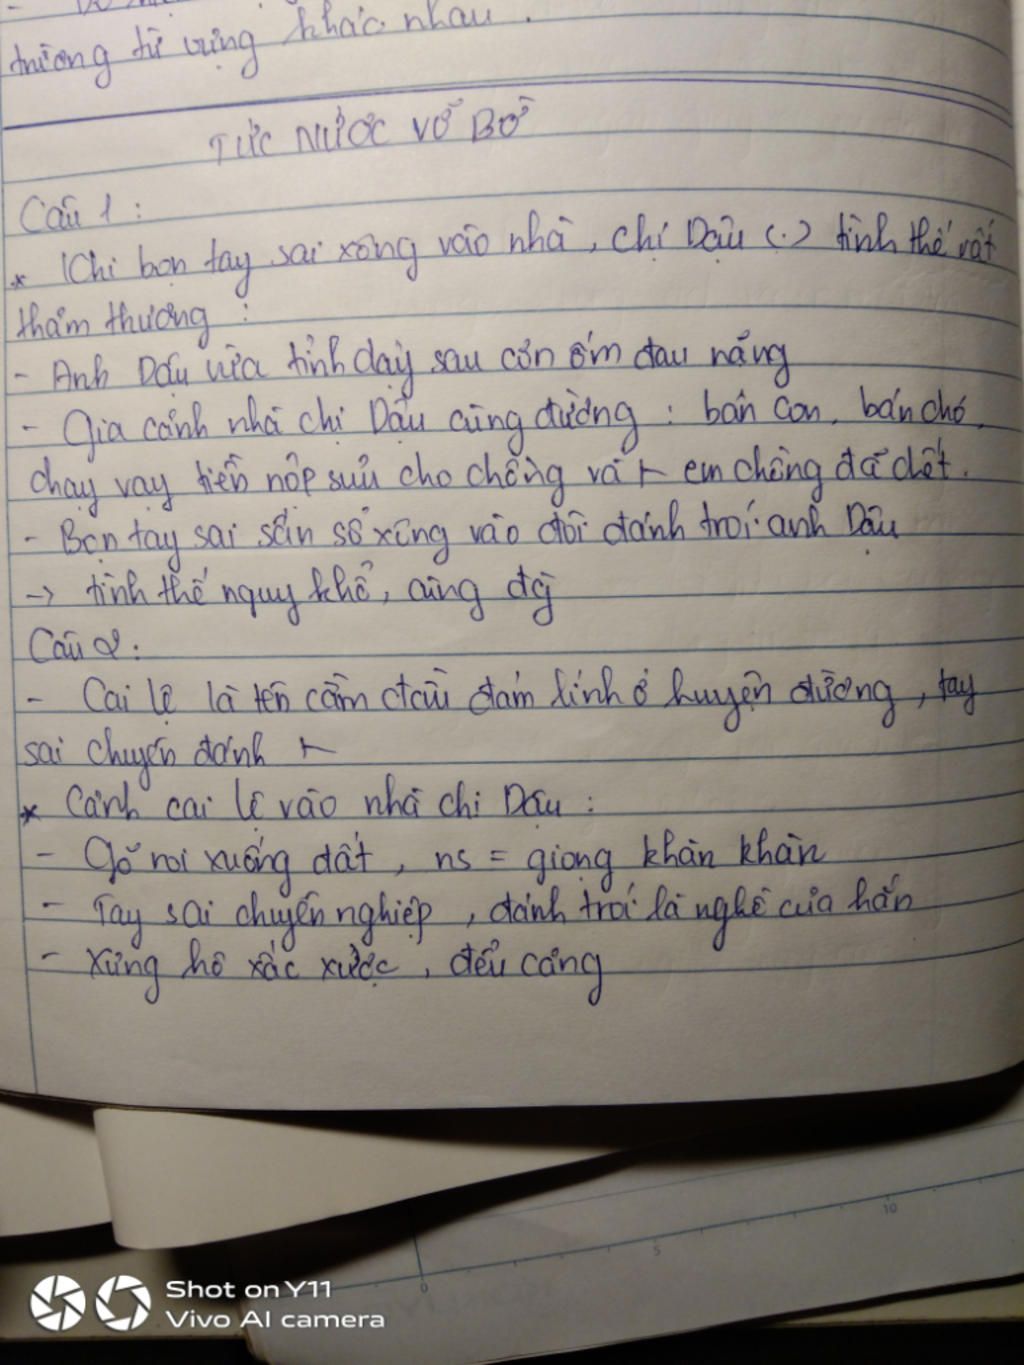 trường từ vựng khác nhau.
TỨC NƯỚC VỠ BỜ
Câu 1:
* Khi bọn tay sai xông vào nhà, chị Dậu (.) tình thế rất
thảm thương :
- Anh Dậu vừa tỉnh dạy sau cơn ốm đau nặng
- Gia cảnh nhà chị Dậu cùng đường : bán con, bán chó,
chạy vạy tiền nộp sưu cho chồng và em chồng đã chết.
- Bọn tay sai sấn sổ xông vào đòi đánh trói anh Dậu
-> tình thế nguy khổ, cùng đg
Câu 2:
- Cai lệ là tên cầm đầu đám lính ở huyện đường, tay
sai chuyên đánh
* Cảnh cai lệ vào nhà chị Dậu :
- Gõ roi xuống đất, ns = giọng khàn khàn
- Tay sai chuyên nghiệp, đánh trói là nghề của hắn
- Xưng hô xấc xược, đểu cáng
0
5
10
Shot on Y11
Vivo AI camera